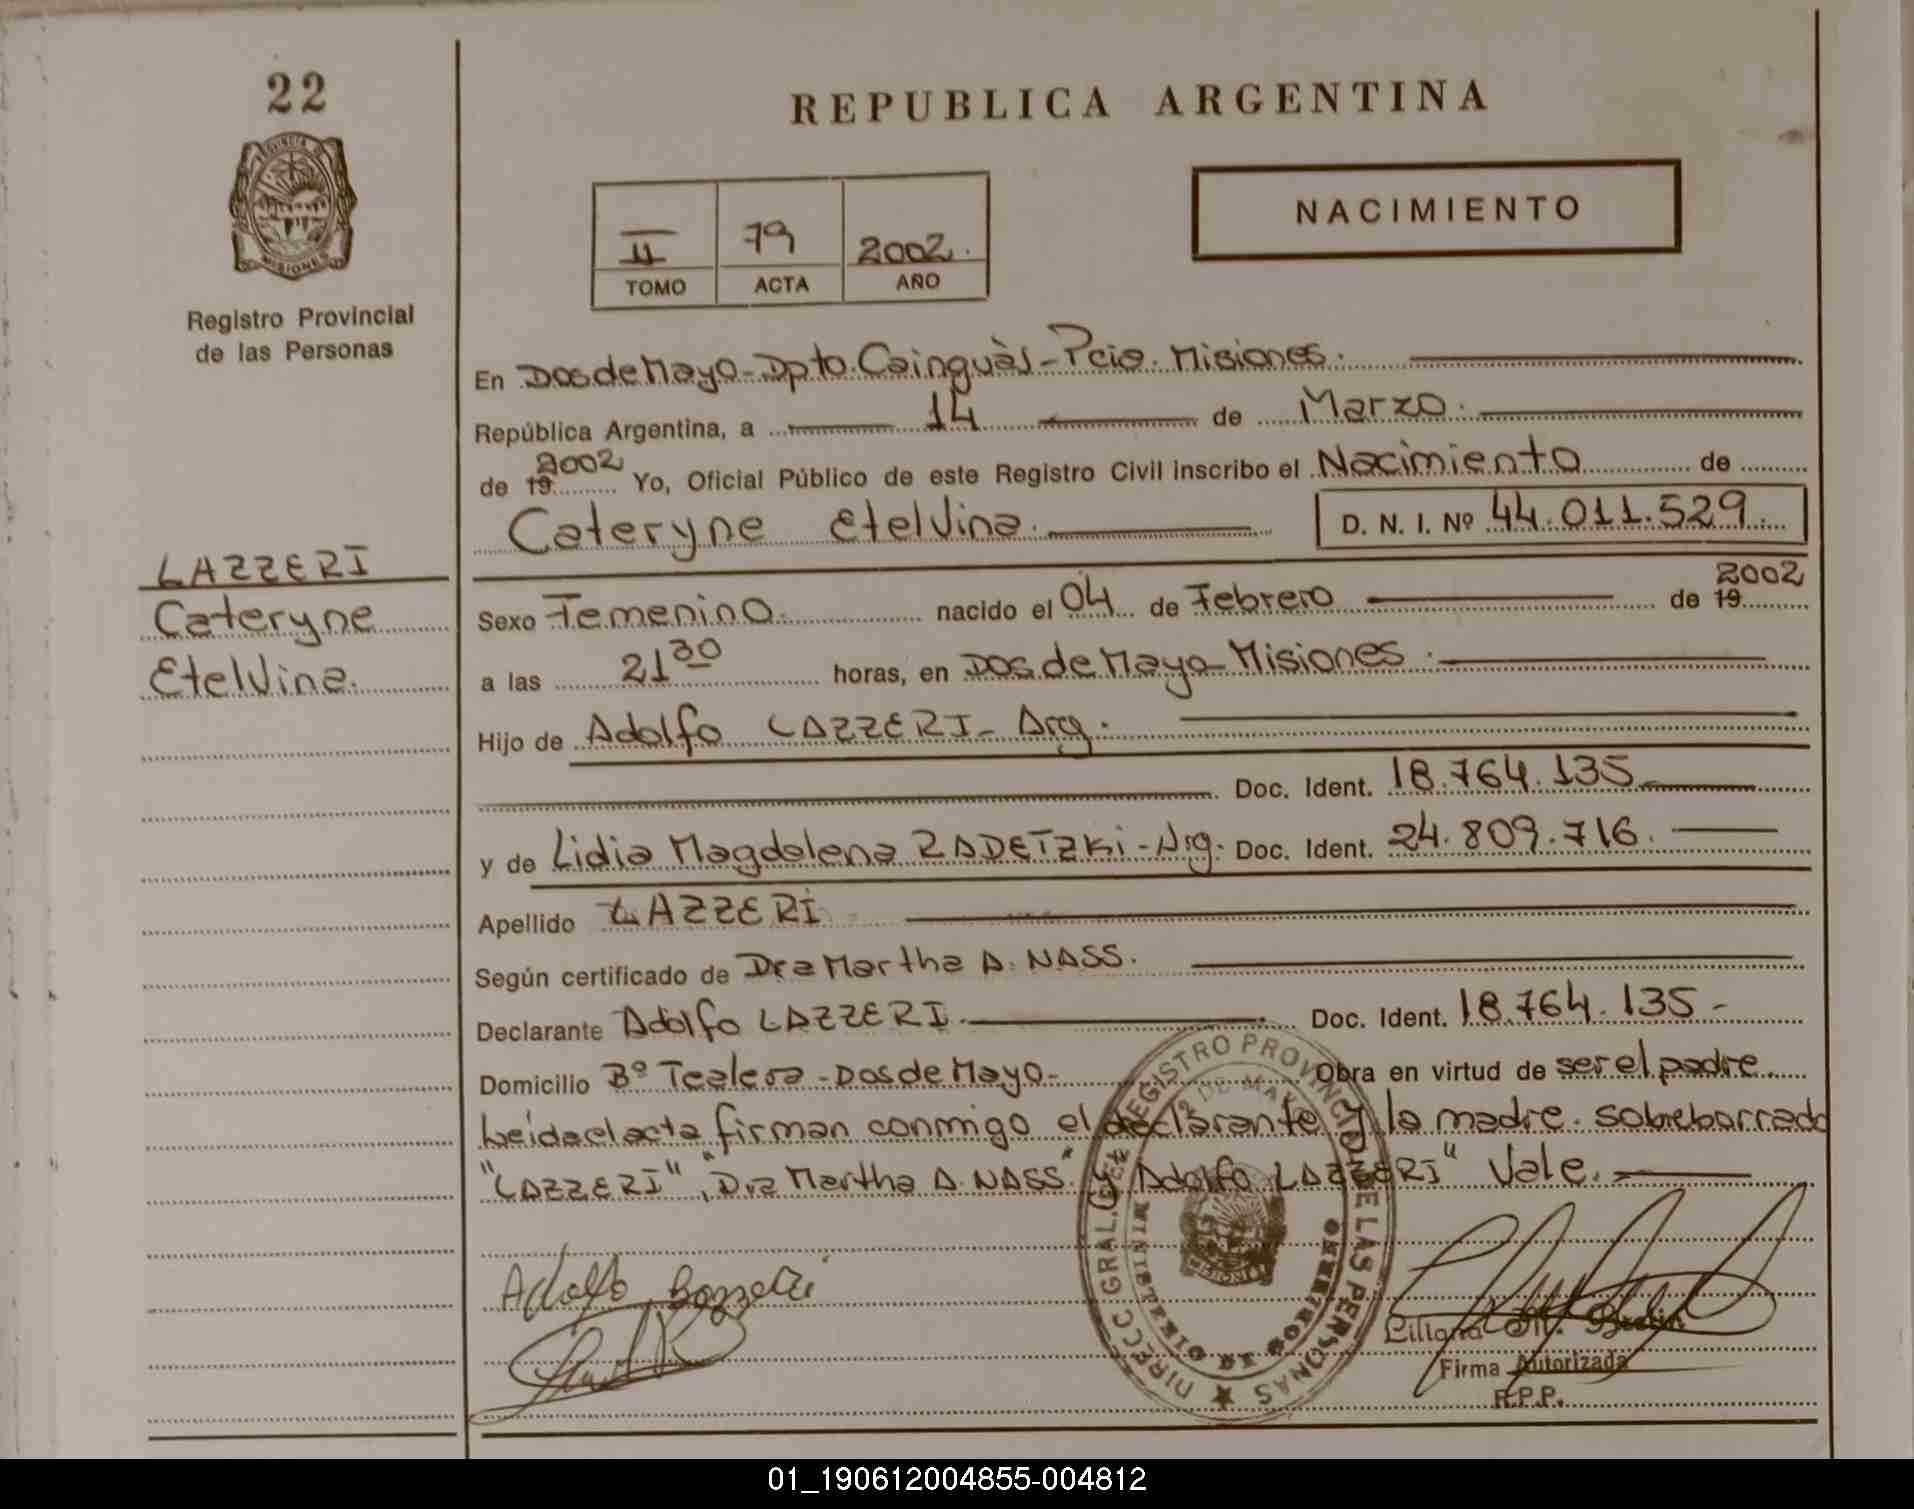 22
PROVINCIA DE
MISIONES
Registro Provincial
de las Personas
LAZZERI
Cateryne
Etelvina.
REPUBLICA ARGENTINA
NACIMIENTO
II 79 2002.
TOMO ACTA AÑO
En Dos de Mayo - Dpto. Cainguàs - Pcia. Misiones.
República Argentina, a 14 de Marzo.
de 19 2002 Yo, Oficial Público de este Registro Civil inscribo el Nacimiento de
Cateryne Etelvina. D. N. I. Nº 44.011.529
Sexo Femenino. nacido el 04 de Febrero de 19 2002
a las 21 30 horas, en Dos de Mayo - Misiones.
Hijo de Adolfo LAZZERI - Arg.
Doc. Ident. 18.764.135
y de Lidia Magdalena RADETZKI - Arg. Doc. Ident. 24.809.716.
Apellido LAZZERI
Según certificado de Dra Martha A. NASS.
Declarante Adolfo LAZZERI. Doc. Ident. 18.764.135 -
Domicilio Bº Tealera - Dos de Mayo - Obra en virtud de ser el padre
Leída el acta firman conmigo el declarante y la madre. sobreborrado
"LAZZERI", "Dra Martha A. NASS" y "Adolfo LAZZERI" Vale.
DIRECC. GRAL. DEL REGISTRO PROVINCIAL DE LAS PERSONAS
2 DE MAYO
Adolfo
Liliana
Firma Autorizada
R.P.P.
01_190612004855-004812